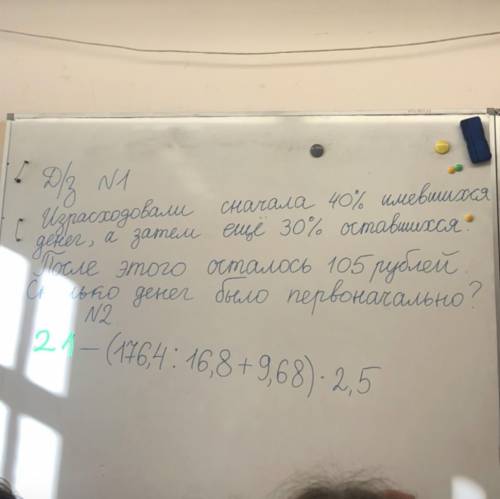 Д/з №1
Израсходовали сначала 40% имевшихся
денег, а затем ещё 30% оставшихся.
После этого осталось 105 рублей.
Сколько денег было первоначально?
№2
21 - (176,4 : 16,8 + 9,68) · 2,5